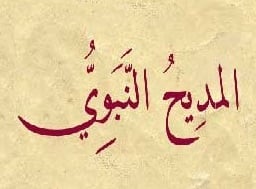 المدِيحُ النَّبَوِيُّ